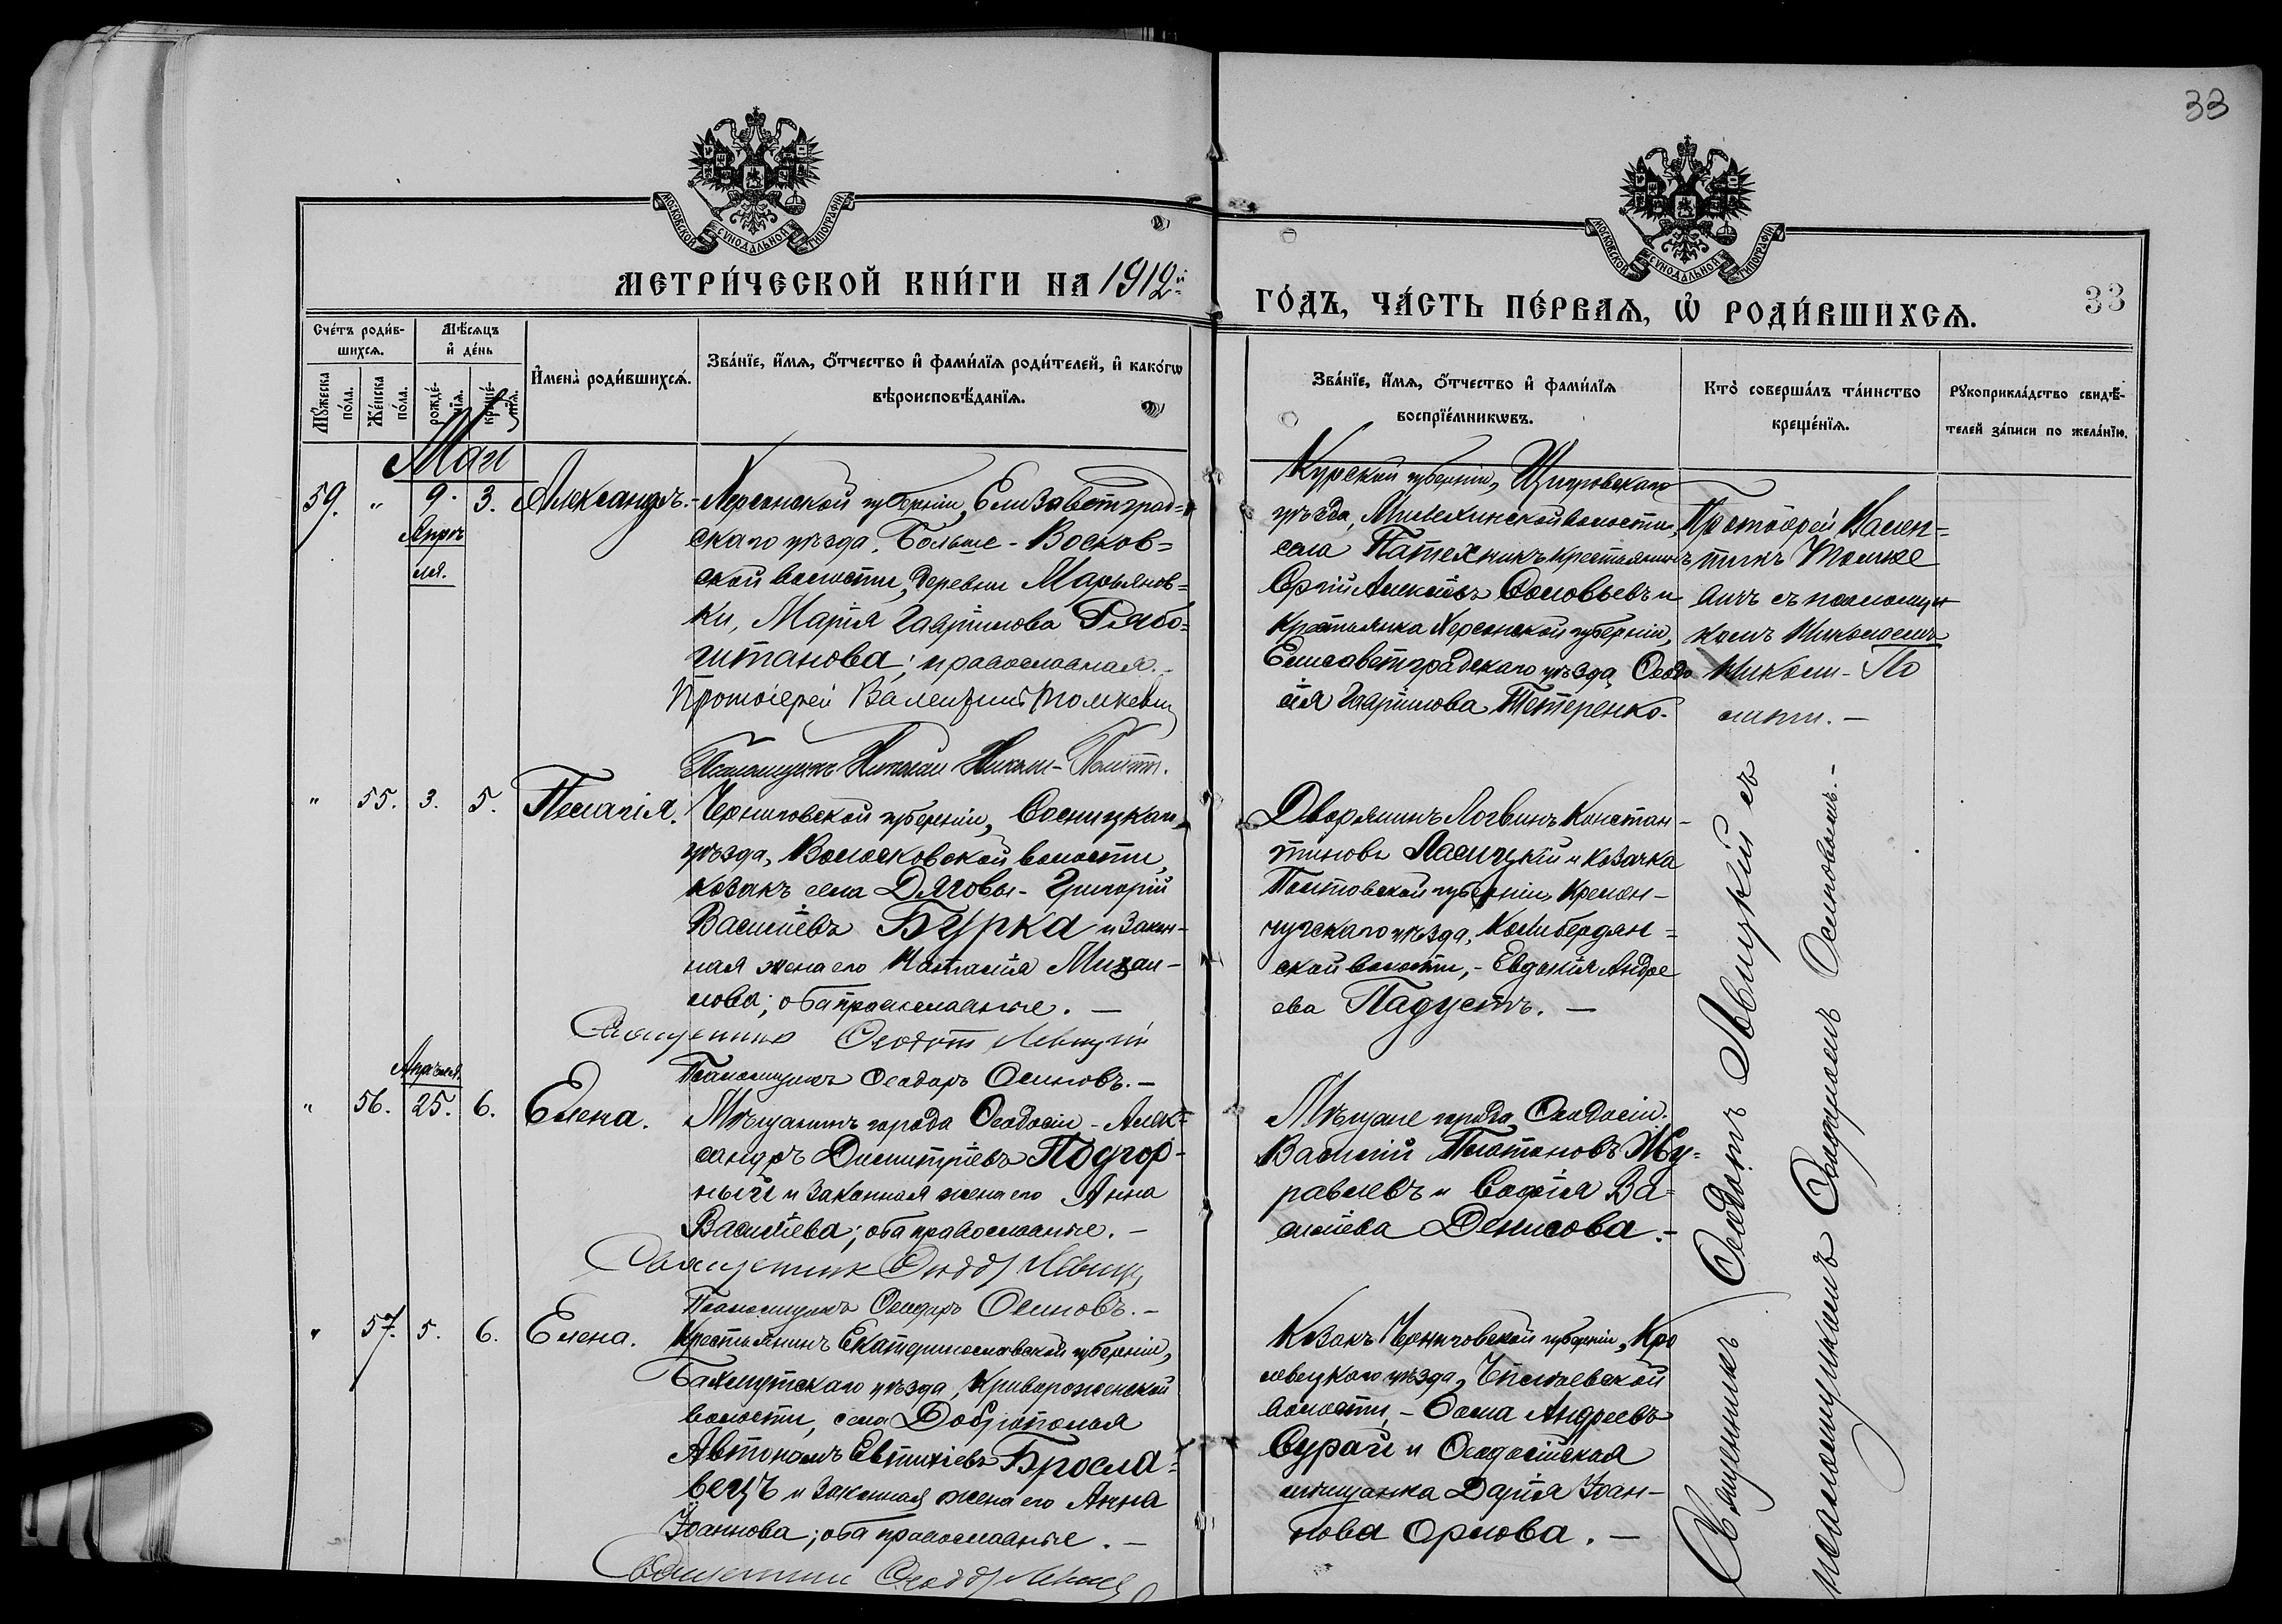 33
МОСКОВСКОЙ СѴНОДАЛЬНОЙ ТИПОГРАФІИ
МОСКОВСКОЙ СѴНОДАЛЬНОЙ ТИПОГРАФІИ
МЕТРИ́ЧЕСКОЙ КНИ́ГИ НА 1912й
ГО́ДЪ, ЧА́СТЬ ПЕ́РВАѦ, Ѡ҆ РОДИ́ВШИХСѦ.
33
Сче́тъ роди́в-
шихсѧ.
Мѣ́сѧцъ
и҆ де́нь
Мꙋ́жеска
по́ла.
Же́нска
по́ла.
рожде́-
нїѧ.
креще́-
нїѧ.
И҆мена̀ роди́вшихсѧ.
Зва́нїе, и҆́мѧ, ѻ҆́тчество и҆ фами́лїѧ роди́телей, и҆ како́гѡ
вѣроисповѣ́данїѧ.
Зва́нїе, и҆́мѧ, ѻ҆́тчество и҆ фами́лїѧ
воспрїе́мникѡвъ.
Кто̀ соверша́лъ та́инство
креще́нїѧ.
Рꙋкоприкла́дство свидѣ́-
телей за́писи по жела́нїю.
Май
59. " 9. 3. Александръ.
Апрѣ
ля.
Херсонской губерніи, Елизаветград-
скаго уѣзда, Больше-Восков=
ской волости, деревни Марьянов=
ки, Марія Гавріилова Рябо=
штанова; православная.
Протоіерей Валентинъ Томкевич
Псаломщикъ Николай Николи-Политі.
Курской губерніи, Щигровскаго
уѣзда, Милехинской волости,
села Патехникъ крестьянинъ
Сергій Алексѣевъ Соловьевъ и
крестьянка Херсонской губерніи,
Елисаветградскаго уѣзда Ѳеодо
сія Гавріилова Тетеренко.
Протоіерей Вален=
тинъ Томке
вичъ съ псаломщи
комъ Николаемъ
Николи-По
лити.—
" 55. 3. 5. Пелагія.
Черниговской губерніи, Сосницкаго
уѣзда, Волосковской волости
козакъ села Дяговы-Григорій
Васильевъ Бурка и закон-
ная жена его Наталія Михаи-
лова; оба православные.—
Священникъ Ѳеодотъ Левицкій
Псаломщикъ Ѳеодоръ Осиповъ.—
Дворянинъ Логвинъ Констан-
тиновъ Ласицкій и козачка
Полтовской губерніи, Кремен-
чугскаго уѣзда, Колибердян=
ской волости,- Евдокія Андре
ева Падустъ.—
Апрѣля.
" 56. 25. 6. Елена.
Мѣщанинъ города Ѳеодосіи-Алек=
сандръ Димитріевъ Подгор-
ный и законная жена его Анна
Васильева; оба православные.—
Священникъ Ѳеодотъ Левицкій
Псаломщикъ Ѳеодоръ Осиповъ.—
Мѣщане города Ѳеодосіи.
Василій Платоновъ Жу-
равлевъ и Софія Ва-
сильева Денисова.-
" 57. 5. 6. Елена.
Крестьянинъ Екатеринославской губерніи,
Бахмутскаго уѣзда, Криворожской
волости, села Доброполья
Автономъ Евтихіевъ Бросла-
вецъ и законная жена его Анна
Іоаннова; оба православные.—
Священникъ Ѳеодотъ Левицкій
Козакъ Черниговской губерніи, Кро
левецкаго уѣзда,
волости,- Ѳома Андреевъ
Сурай и Ѳеодосійская
мѣщанка Дарія Іоан-
нова Орлова.—
Священникъ Ѳеодотъ Левицкій съ
псаломщикомъ Ѳеодоромъ Осиповымъ.-